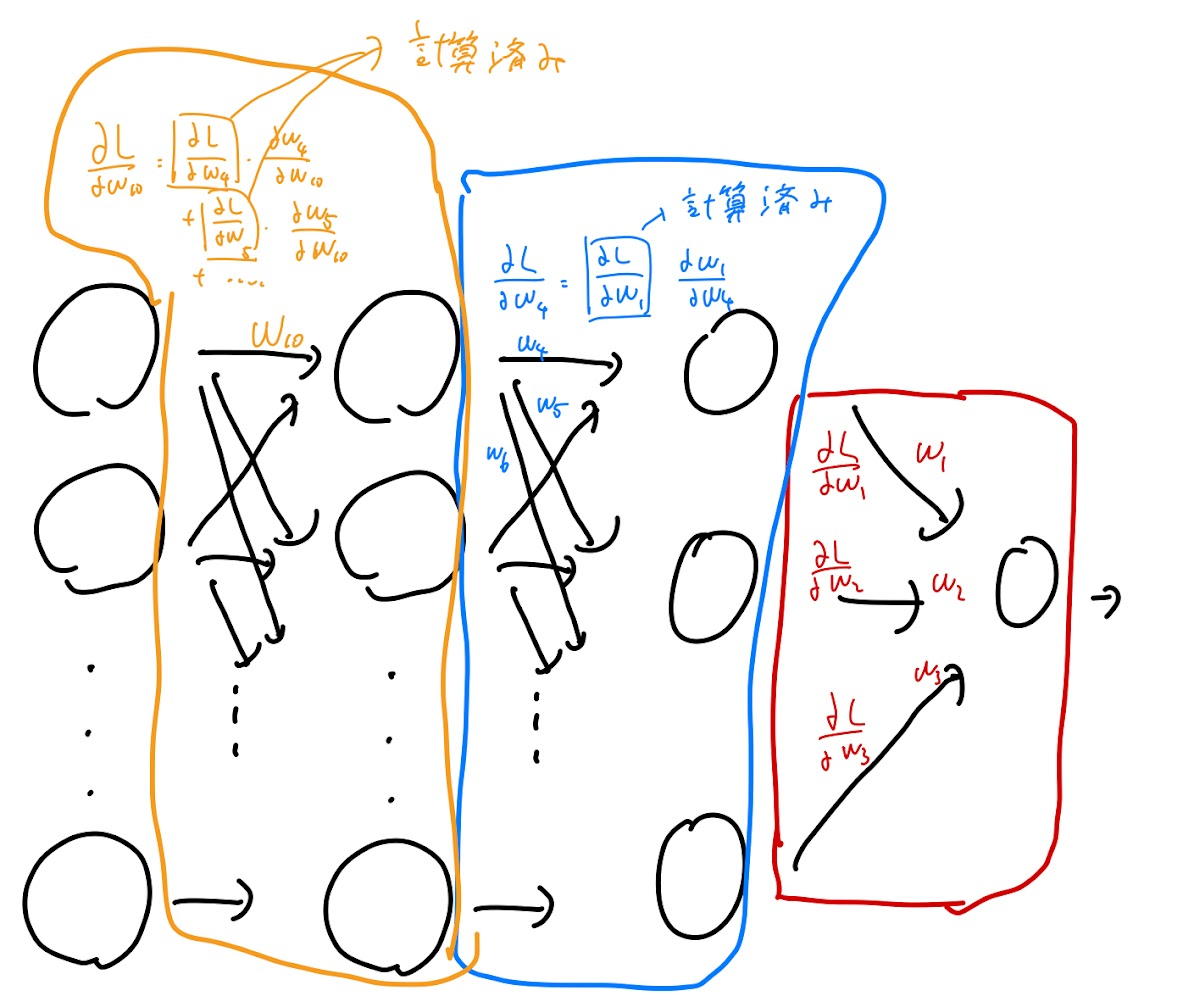 計算済み
∂L/∂w₁₀ = ∂L/∂w₄ · ∂w₄/∂w₁₀
+ ∂L/∂w₅ · ∂w₅/∂w₁₀
+ .....
計算済み
∂L/∂w₄ = ∂L/∂w₁ ∂w₁/∂w₄
W₁₀
w₄
w₅
w₆
∂L/∂w₁
w₁
∂L/∂w₂
w₂
w₃
∂L/∂w₃